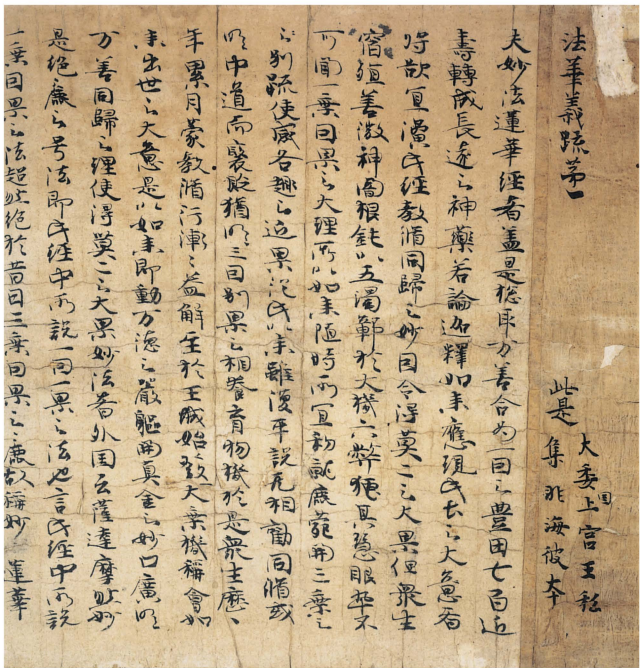 法華義疏第一
此是
大委国上宮王私
集非海彼本
夫妙法蓮華經者盖是惣取万善合為一因之豊田七百近
壽轉成長遠之神藥若論迦釋如来應現此土之大意者
将欲宜演此經教脩同歸之妙因令得莫二之大果但衆生
宿殖善微神闇根鈍以五濁鄣於大機六弊掩其慧眼卒不
可聞一乗因果之大理所以如来随時所宜初就鹿苑開三乗之
別疏使感各趣之近果従此以来雖復平説无相勸同脩或
明中道而褒貶猶明三因別果之相養育物機於是衆生歷〻
年累月蒙教脩行漸〻益解至於王城始發大乗機稱會如
来出世之大意是以如来即動万徳之嚴軀開真金之妙口廣明
万善同歸之理使得莫二之大果妙法者外国云薩達摩然妙
是絶麁之号法即此經中所説一因一果之法也言此經中所説
一乗因果之法超然絶於昔日三乗因果之麁故稱妙 蓮華